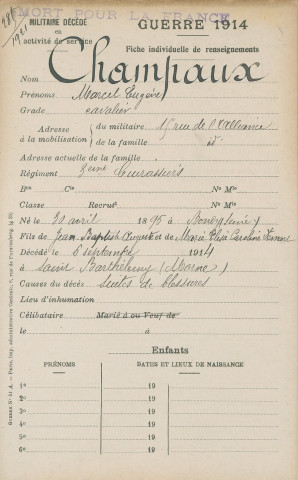 MORT POUR LA FRANCE
MILITAIRE DÉCÉDÉ
en
activité de service
GUERRE 1914
Fiche individuelle de renseignements
Nom Champaux
Prénoms Marcel Eugène
Grade cavalier
Adresse à la mobilisation { du militaire 15 rue de l'Alliance
de la famille id
Adresse actuelle de la famille
Régiment 3ème Cuirassiers
Bon Cie No Mle
Classe Recrut No Mle
Né le 30 avril 1895 à
Fils de Jean Baptiste Auguste et de Marie Elisa Caroline
Décédé le 6 septembre 1914
à Saint Barthélemy (Marne)
Causes du décès Suites de blessures
Lieu d'inhumation
Célibataire Marié à ou Veuf de
le à
Enfants
PRÉNOMS DATES ET LIEUX DE NAISSANCE
1o 19
2o 19
3o 19
4o 19
5o 19
6o 19